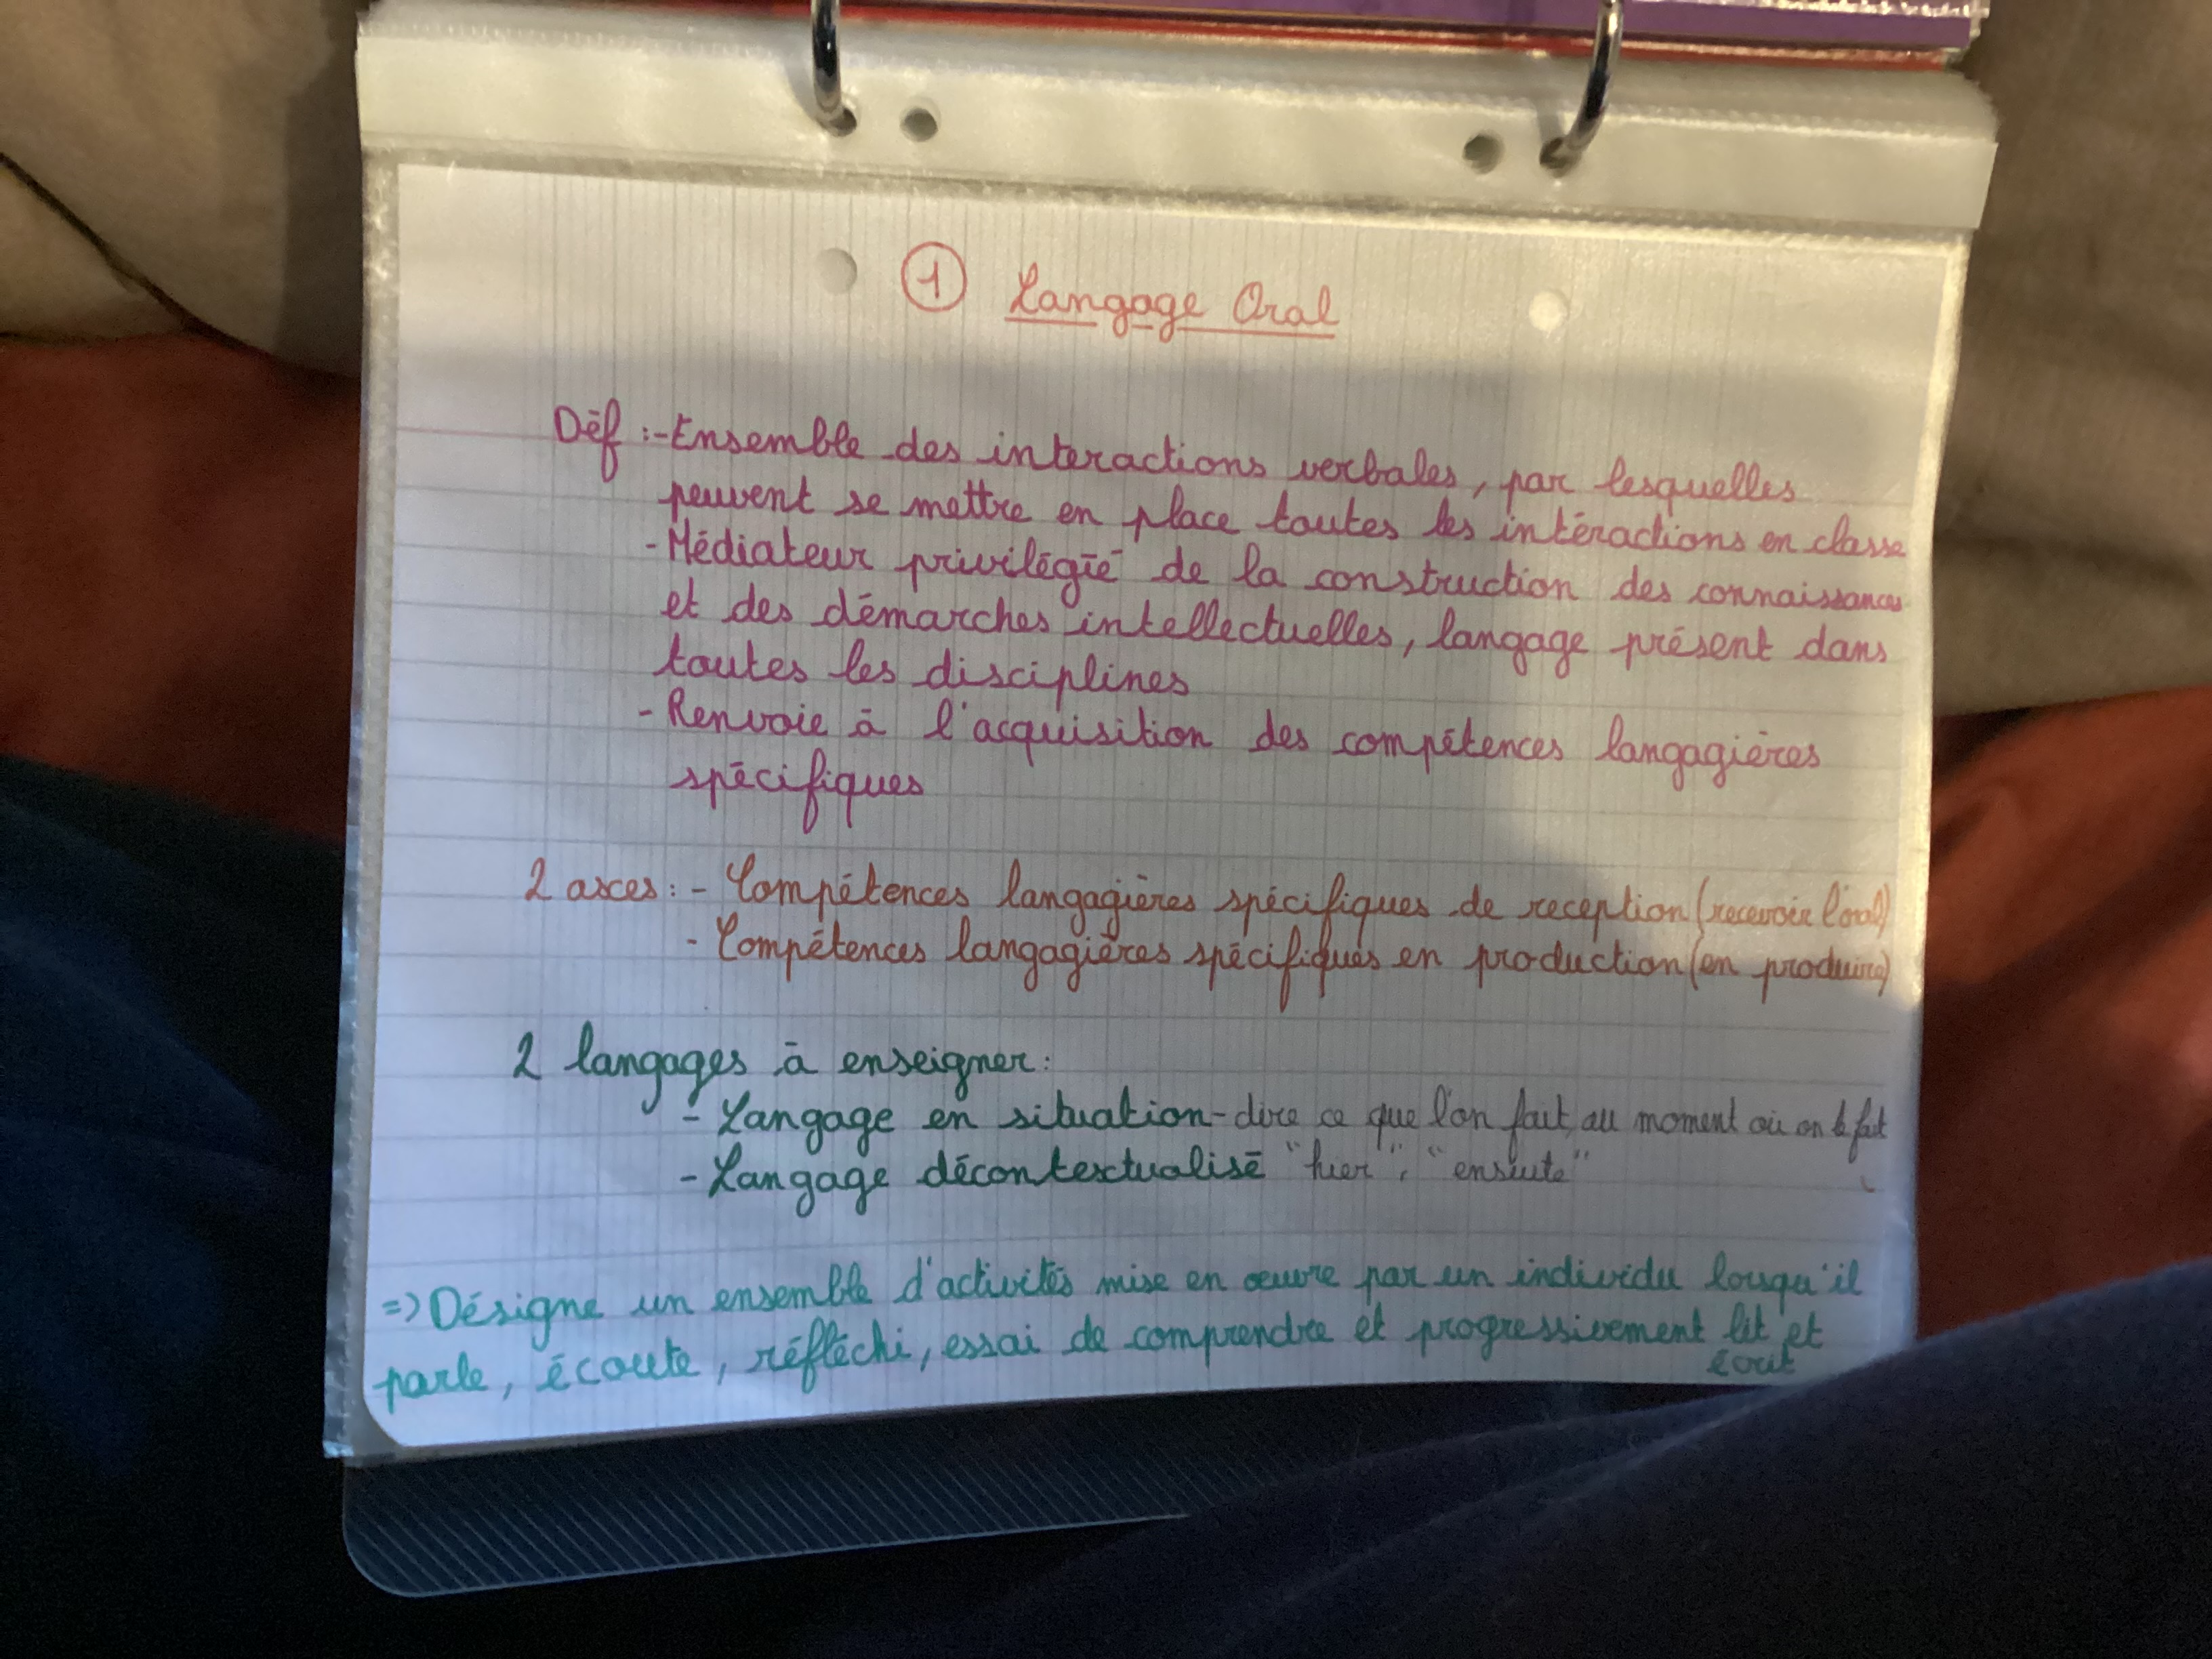 ① Langage Oral
Déf :- Ensemble des interactions verbales, par lesquelles
peuvent se mettre en place toutes les intéractions en classe
- Médiateur privilégié de la construction des connaissances
et des démarches intellectuelles, langage présent dans
toutes les disciplines
- Renvoie à l'acquisition des compétences langagières
spécifiques
2 axes : - Compétences langagières spécifiques de reception (recevoir l'oral)
- Compétences langagières spécifiques en production (en produire)
2 langages à enseigner :
- Langage en situation - dire ce que l'on fait au moment où on le fait
- Langage décontextualisé "hier", "ensuite"
=> Désigne un ensemble d'activités mise en œuvre par un individu lorsqu'il
parle, écoute, réfléchi, essai de comprendre et progressivement lit et
écrit